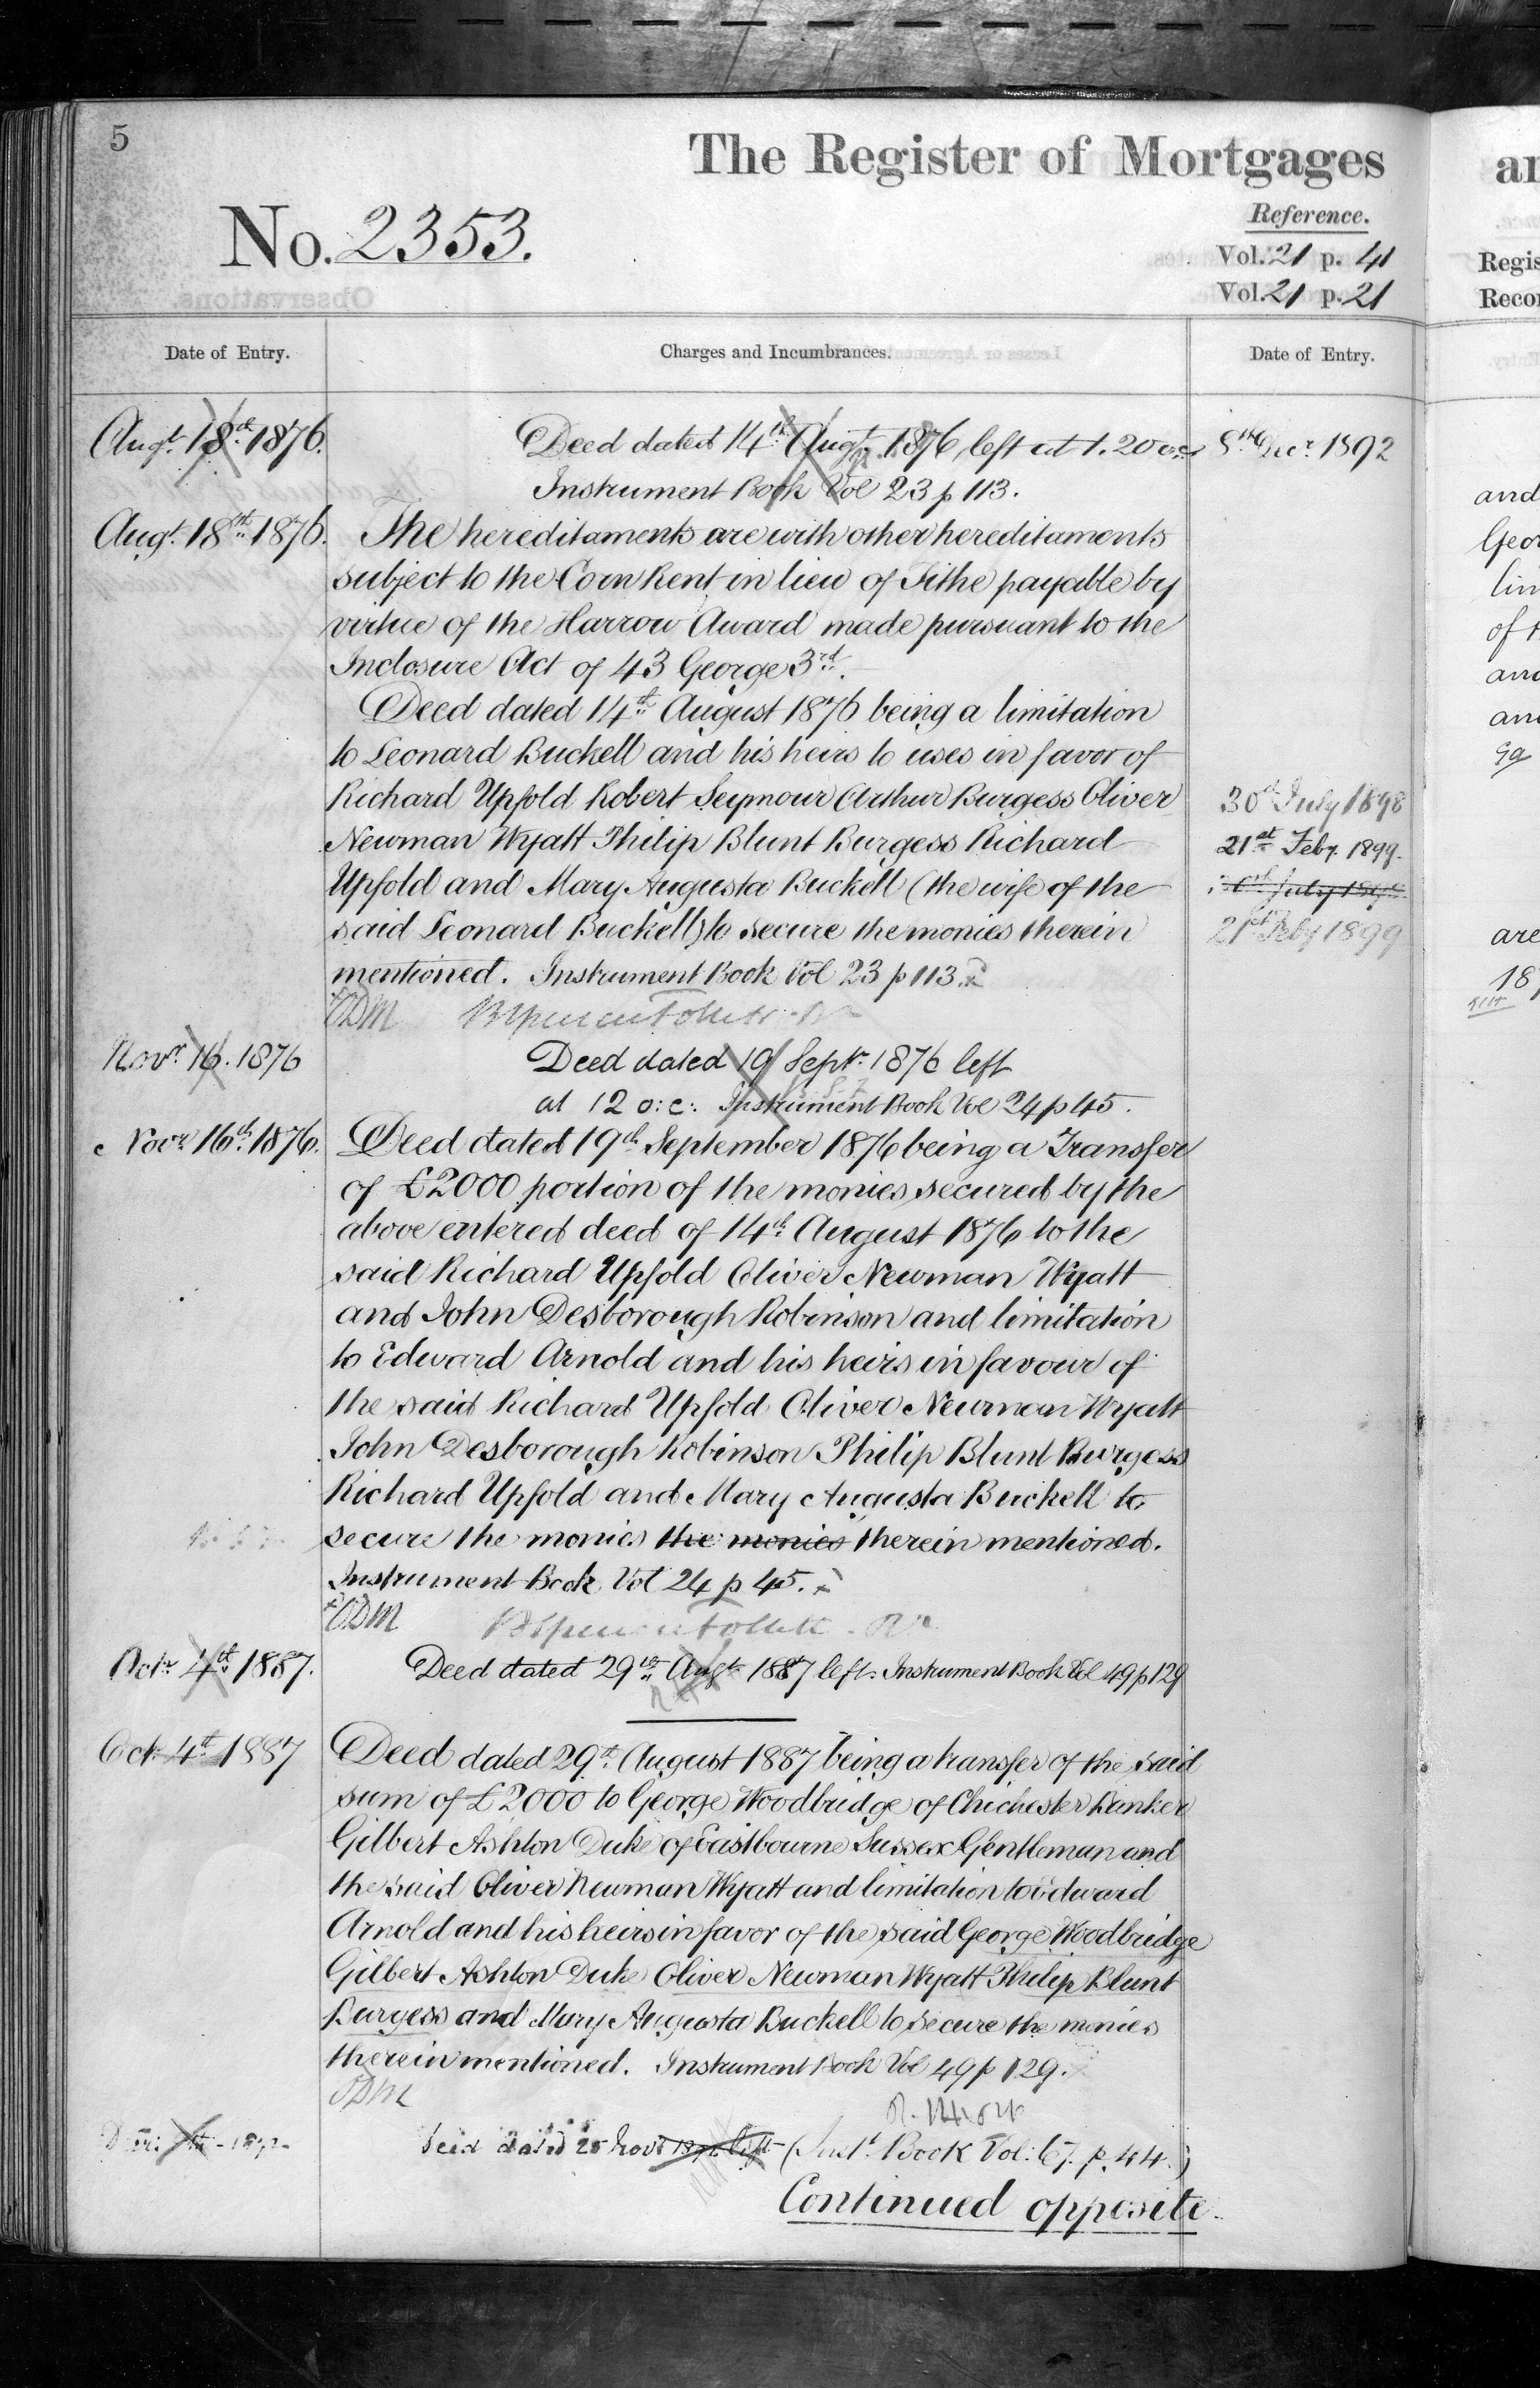 5
The Register of Mortgages
Reference.
No. 2353.
Vol. 21 p. 41
Vol. 21 p. 21
Date of Entry.
Charges and Incumbrances.
Date of Entry.
Augt. 18th 1876.
Deed dated 14th Augt. 1876 left at 1.20 o.c.
8th Decr. 1892
Instrument Book Vol 23 p 113.
Augt. 18th 1876.
The hereditaments are with other hereditaments
subject to the Corn Rent in lieu of Tithe payable by
virtue of the Harrow Award made pursuant to the
Inclosure Act of 43 George 3rd.
Deed dated 14th August 1876 being a limitation
to Leonard Buckell and his heirs to uses in favor of
Richard Upfold Robert Seymour Arthur Burgess Oliver
30th July 1898
Newman Wyatt Philip Blunt Burgess Richard
21st Feby. 1899.
Upfold and Mary Augusta Buckell (the wife of the
July
said Leonard Buckell) to secure the monies therein
21st Feby 1899
mentioned. Instrument Book Vol 23 p 113.
ODM
Novr. 16. 1876
Deed dated 19 Septr. 1876 left
at 12 o:c: Instrument Book Vol 24 p 45.
Novr. 16th 1876.
Deed dated 19th September 1876 being a Transfer
of £2000 portion of the monies secured by the
above entered deed of 14th August 1876 to the
said Richard Upfold Oliver Newman Wyatt
and John Desborough Robinson and limitation
to Edward Arnold and his heirs in favour of
the said Richard Upfold Oliver Newman Wyatt
John Desborough Robinson Philip Blunt Burgess
Richard Upfold and Mary Augusta Buckell to
secure the monies the monies therein mentioned.
Instrument Book Vol 24 p 45.
ODM
Octr. 4th 1887.
Deed dated 29th Augt. 1887 left. Instrument Book Vol 49 p 129
Oct. 4th 1887
Deed dated 29th August 1887 being a transfer of the said
sum of £2000 to George Woodbridge of Chichester Banker
Gilbert Ashton Duke of Eastbourne Sussex Gentleman and
the said Oliver Newman Wyatt and limitation to Edward
Arnold and his heirs in favor of the said George Woodbridge
Gilbert Ashton Duke Oliver Newman Wyatt Philip Blunt
Burgess and Mary Augusta Buckell to secure the monies
therein mentioned. Instrument Book Vol 49 p 129.
ODM
Deed dated 25 Novr left (Inst. Book Vol: 67. p. 44.)
Continued opposite.
an
Regis
Recor
and
Geor
lim
of t
and
and
are
18